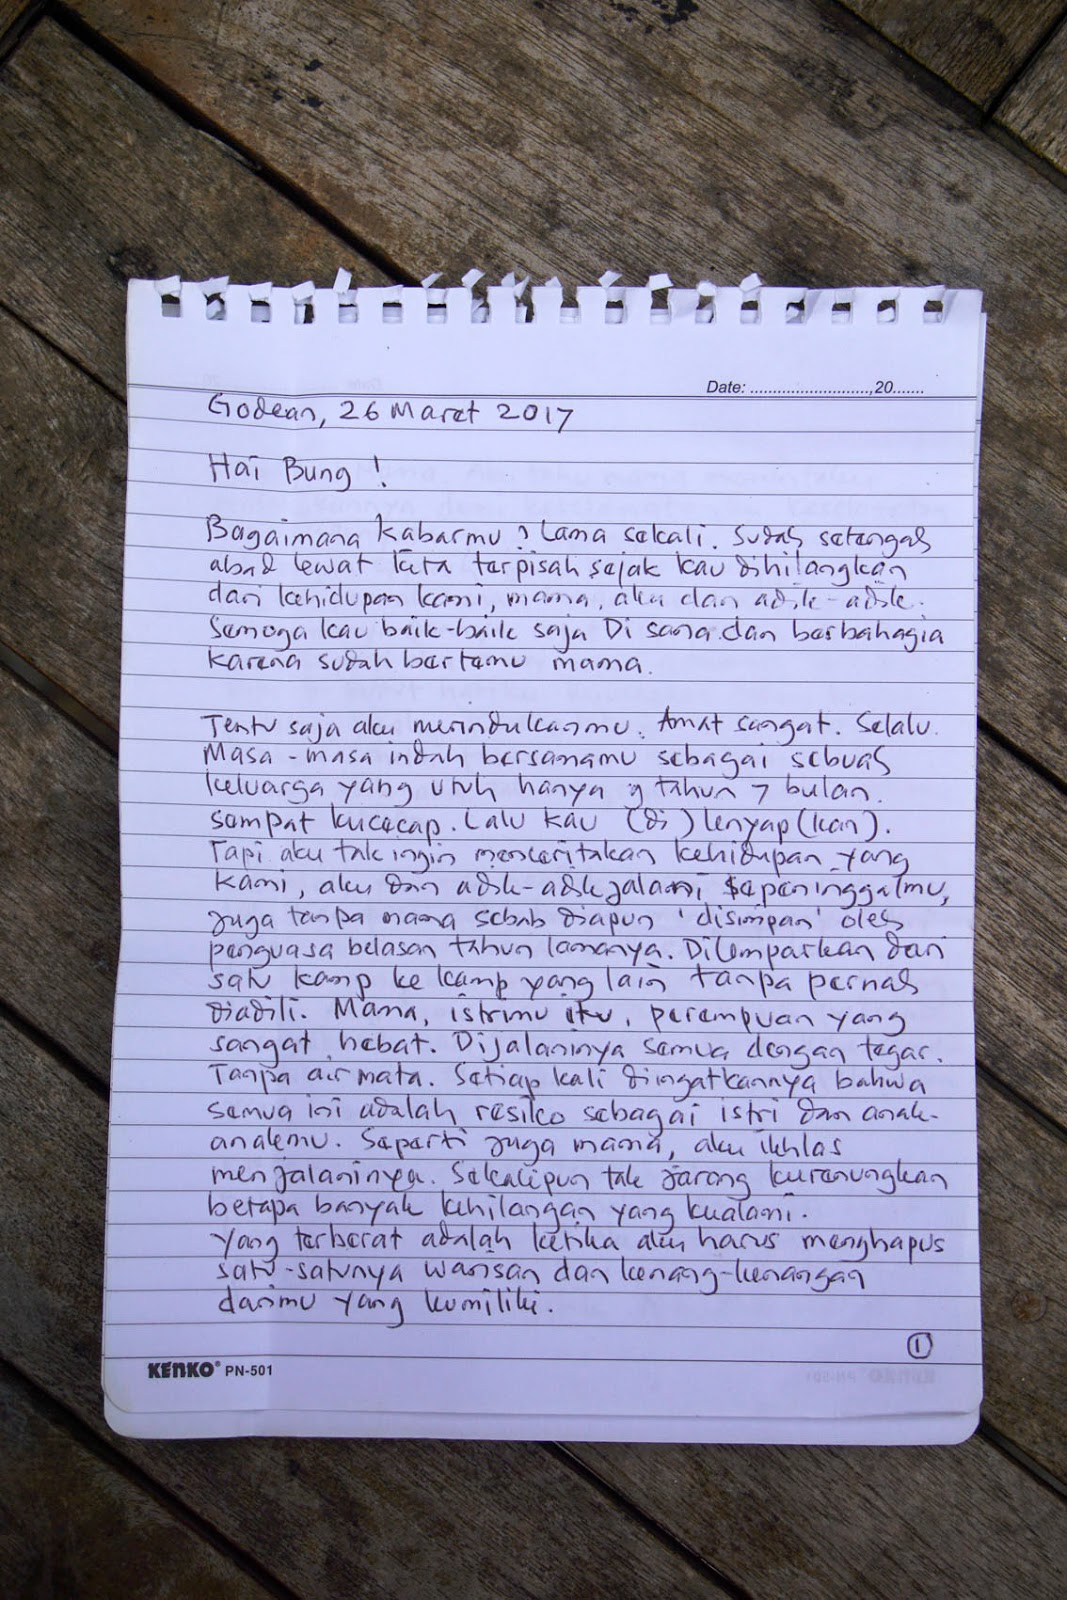 Date: ..........................,20.......
Godean, 26 Maret 2017
Hai Bung !
Bagaimana kabarmu ? Lama sekali. Sudah setengah
abad lewat kita terpisah sejak kau dihilangkan
dari kehidupan kami, mama, aku dan adik-adik.
Semoga kau baik-baik saja Di sana dan berbahagia
karena sudah bertemu mama.
Tentu saja aku merindukanmu. Amat sangat. Selalu.
Masa-masa indah bersamamu sebagai sebuah
keluarga yang utuh hanya 9 tahun 7 bulan
sempat kucecap. Lalu kau (di) lenyap (kan).
Tapi aku tak ingin menceritakan kehidupan yang
kami, aku dan adik-adik jalani sepeninggalmu,
juga tanpa mama sebab diapun 'disimpan' oleh
penguasa belasan tahun lamanya. Dilemparkan dari
satu kamp ke kamp yang lain tanpa pernah
diadili. Mama, istrimu itu, perempuan yang
sangat hebat. Dijalaninya semua dengan tegar.
Tanpa air mata. Setiap kali diingatkannya bahwa
semua ini adalah resiko sebagai istri dan anak-
anakmu. Seperti juga mama, aku ikhlas
menjalaninya. Sekalipun tak jarang kurenungkan
betapa banyak kehilangan yang kualami.
Yang terberat adalah ketika aku harus menghapus
satu-satunya warisan dan kenang-kenangan
darimu yang kumiliki.
1
KENKO® PN-501